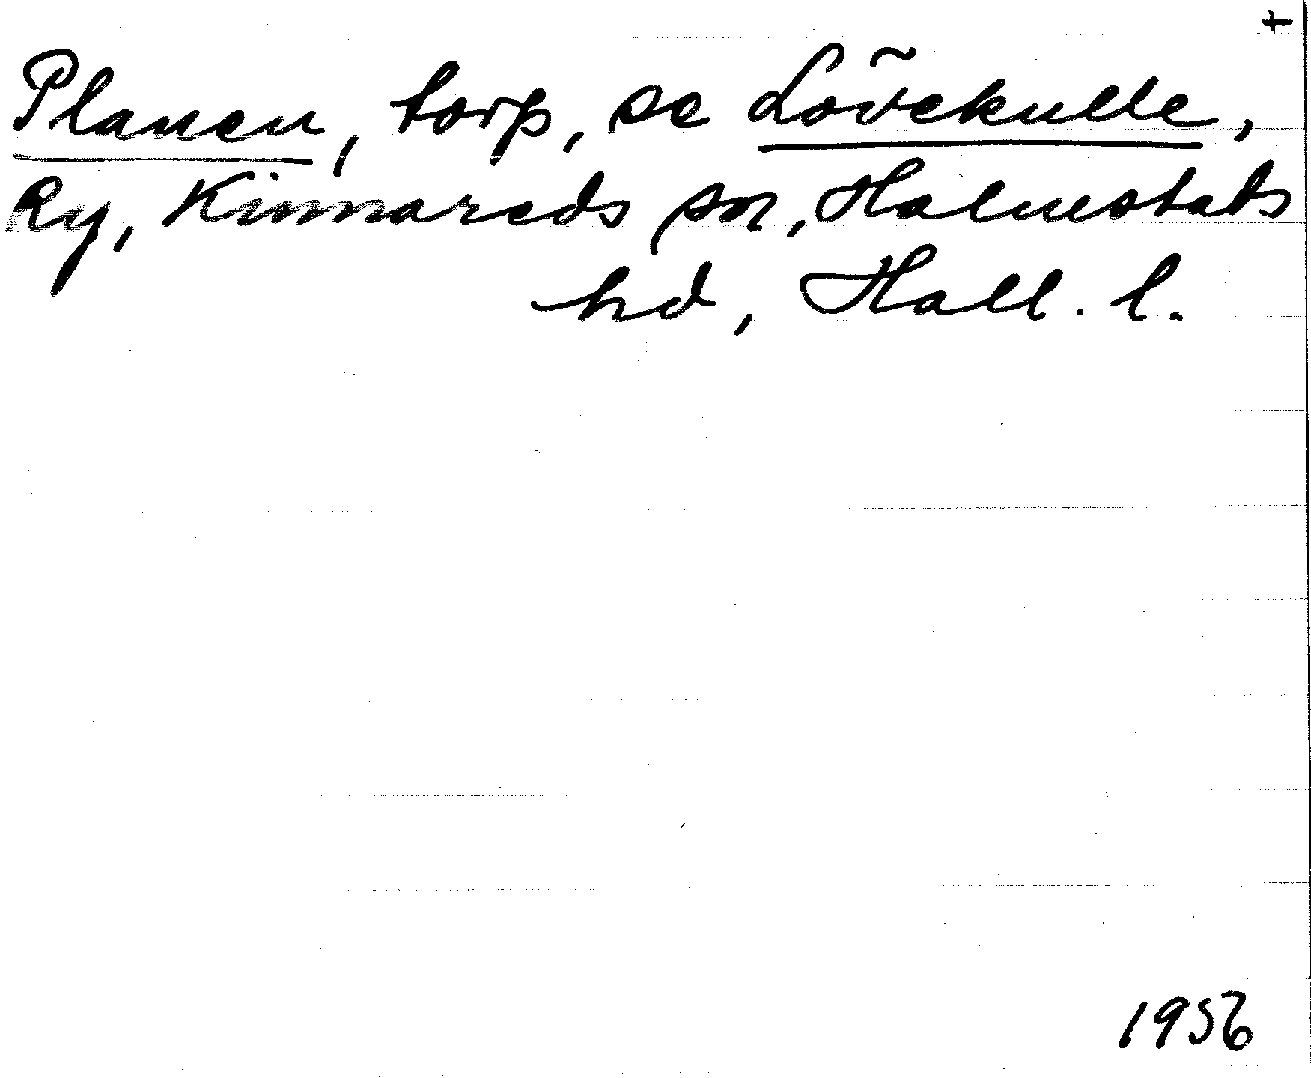 +
Planen, torp, se Lövekulle,
Ry, Kinnareds sn, Halmstads
hd, Hall. l.
1956